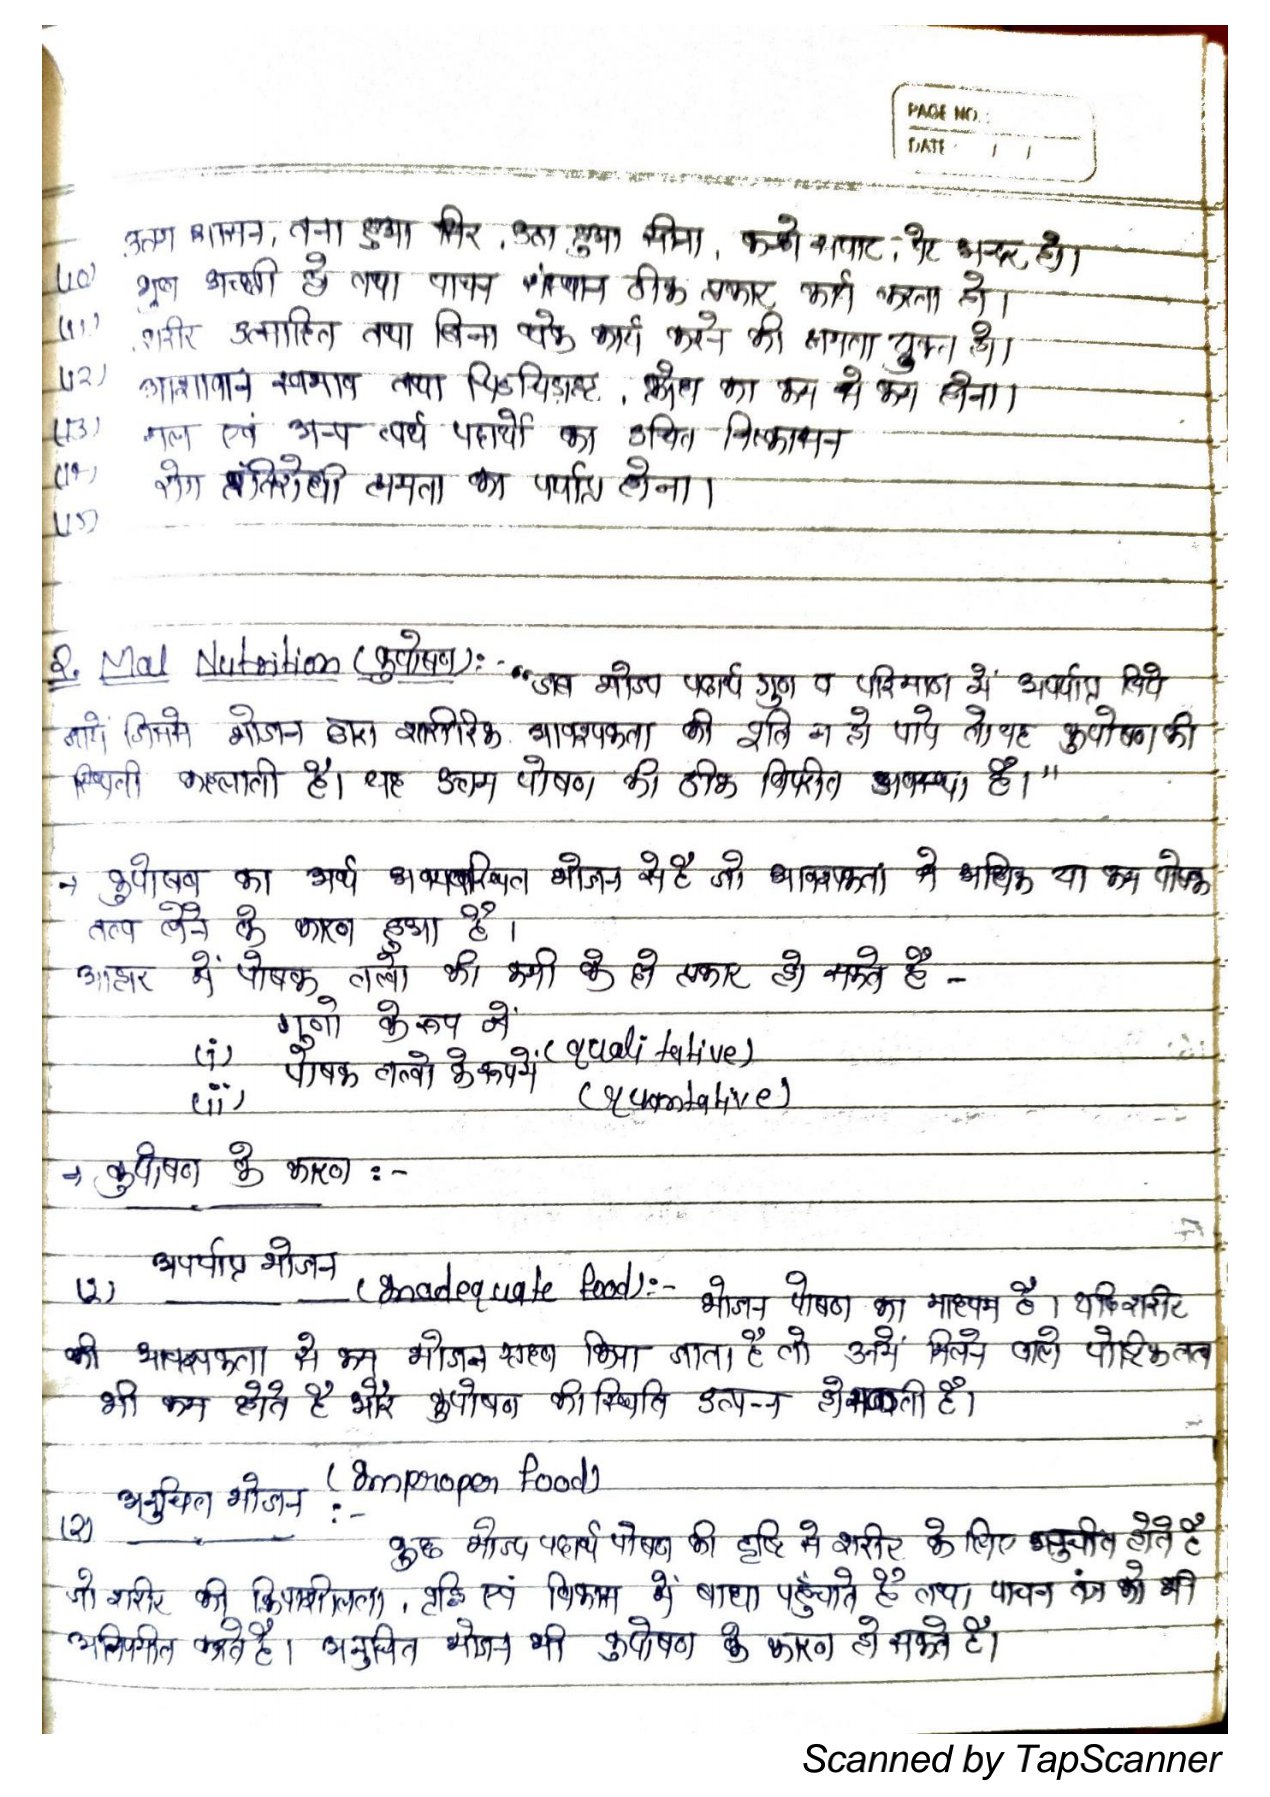 PAGE NO.:
DATE: / /
उत्तम आसन, तना हुआ सिर, उठा हुआ सीना, कन्धे सपाट, पेट अन्दर हो।
(10) भूख अच्छी हो तथा पाचन संस्थान ठीक प्रकार कार्य करता हो।
(11) शरीर उत्साहित तथा बिना थके कार्य करने की क्षमता युक्त हो।
(12) आशावान स्वभाव तथा चिडचिड़ाहट, क्रोध का कम से कम होना।
(13) मल एवं अन्य व्यर्थ पदार्थो का उचित निष्कासन
(14) रोग प्रतिरोधी क्षमता का पर्याप्त होना।
(15)
2. Mal Nutrition (कुपोषण):- "जब भोज्य पदार्थ गुण व परिमाण में अपर्याप्त लिये
जायें जिससे भोजन द्वारा शारीरिक आवश्यकता की पूर्ति न हो पाये तो यह कुपोषण की
स्थिती कहलाती है। यह उत्तम पोषण की ठीक विपरीत अवस्था है।"
→ कुपोषण का अर्थ अव्यवस्थित भोजन से है जो आवश्यकता से अधिक या कम पोषक
तत्व लेने के कारण हुआ है।
आहार में पोषक तत्वो की कमी के दो प्रकार हो सकते है -
(i) गुणो के रूप में (qualitative)
(ii) पोषक तत्वो के रूप में (quantative)
→ कुपोषण के कारण :-
(1) अपर्याप्त भोजन (Inadequate food):- भोजन पोषण का माध्यम है। यदि शरीर
की आवश्यकता से कम भोजन ग्रहण किया जाता है तो उनमें मिलने वाले पोष्टिक तत्व
भी कम होते है और कुपोषण की स्थिति उत्पन्न हो सकती है।
(2) अनुचित भोजन (Improper food) :-
कुछ भोज्य पदार्थ पोषण की दृष्टि से शरीर के लिए अनुचीत होते है
जो शरीर की क्रियाशीलता, वृद्धि एवं विकास में बाधा पहुँचाते है तथा पाचन तंत्र को भी
करते है। अनुचित भोजन भी कुपोषण के कारण हो सकते है।
Scanned by TapScanner